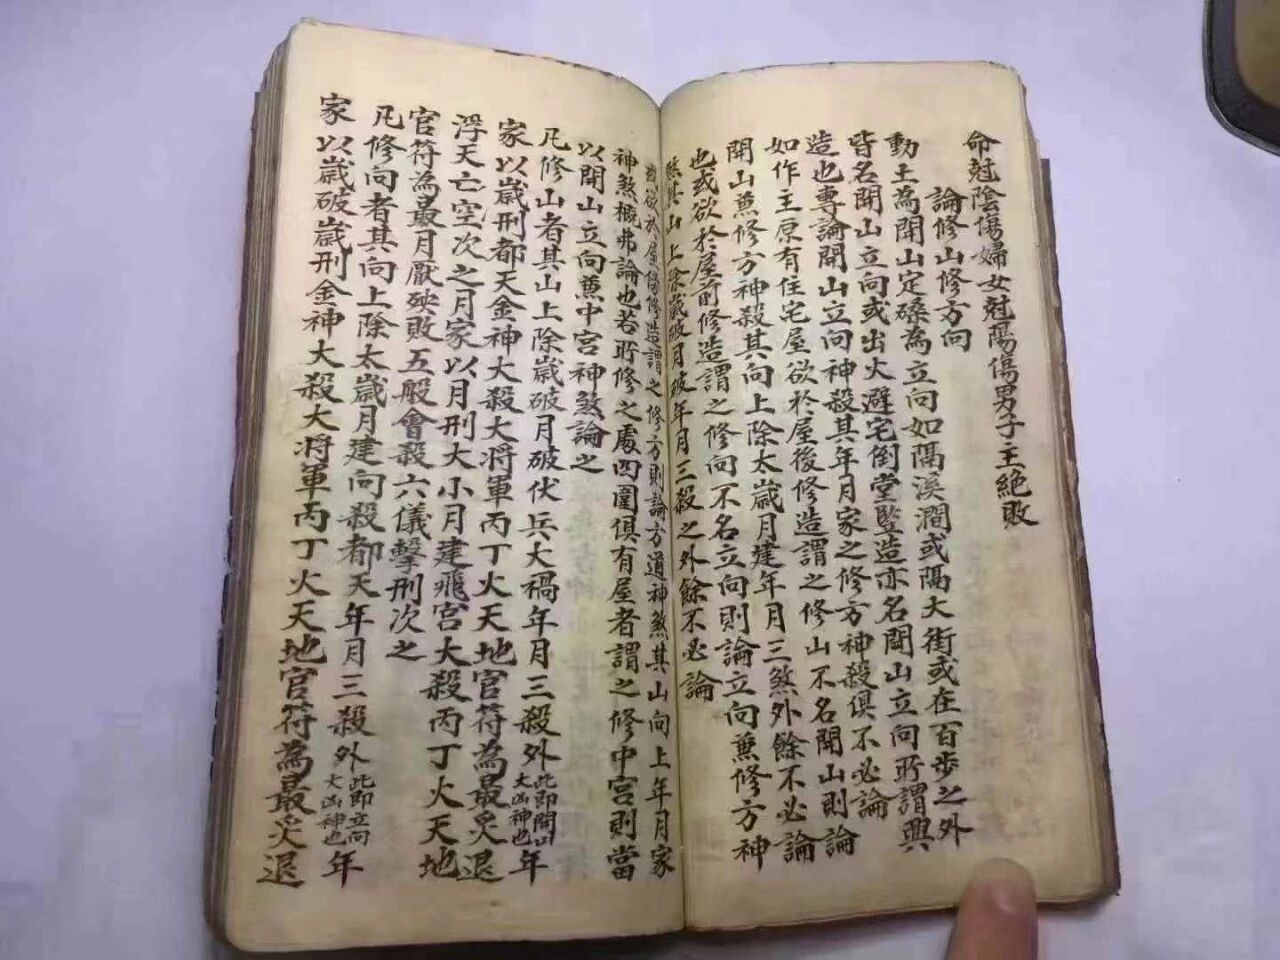 命尅陰傷婦女尅陽傷男子主絶敗
論修山修方向
動土為開山定磉為立向如隔溪澗或隔大街或在百步之外
皆名開山立向或出火避宅倒堂豎造亦名開山立向所謂興
造也專論開山立向神殺其年月家之修方神殺俱不必論
如作主原有住宅屋欲於屋後修造謂之修山不名開山則論
開山兼修方神殺其向上除太歲月建年月三煞外餘不必論
也或欲於屋前修造謂之修向不名立向則論立向兼修方神
煞其山上除歲破月破年月三殺之外餘不必論
欲於屋傍修造謂之修方則論方道神煞其山向上年月家
神煞概弗論也若所修之處四圍俱有屋者謂之修中宮則當
以開山立向兼中宮神煞論之
凡修山者其山上除歲破月破伏兵大禍年月三殺外此即開山大凶神也年
家以歲刑都天金神大殺大将軍丙丁火天地官符為最灸退
浮天亡空次之月家以月刑大小月建飛宮大殺丙丁火天地
官符為最月厭殃敗五般會殺六儀擊刑次之
凡修向者其向上除太歲月建向殺都天年月三殺外此即立向大凶神也年
家以歲破歲刑金神大殺大将軍丙丁火天地官符為最灸退